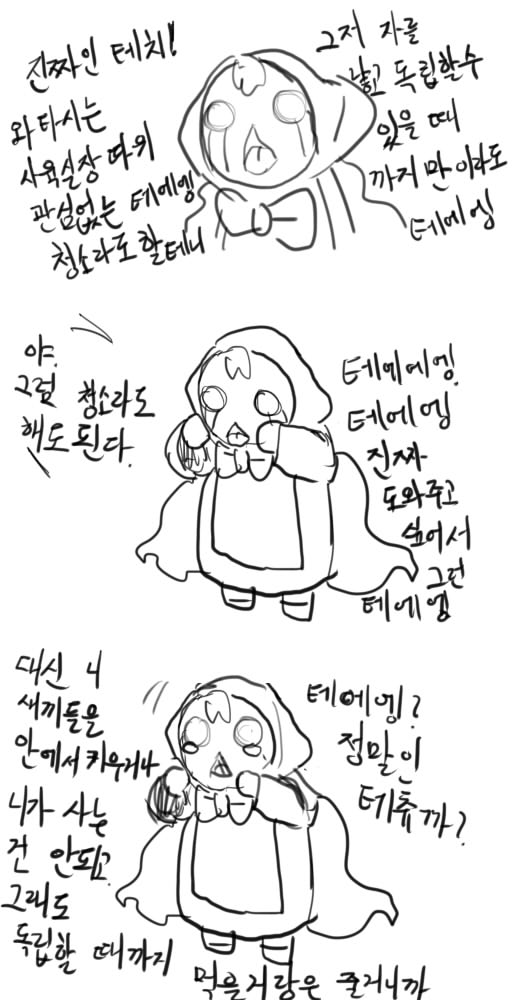 진짜인 테치!
와타시는
사육실장 따위
관심없는 테에엥
청소라도 할테니
그저 자를
낳고 독립할수
있을 때
까지만이라도
테에엥
야.
그럼 청소라도
해도된다.
테에에엥.
테에엥
진짜
도와주고
싶어서
그런
테에엥
대신 니
새끼들을
안에서 키우거나
니가 사는
건 안되고
그래도
독립할 때까지
먹을거랑은 줄거니까
테에엥?
정말인
테츄까?